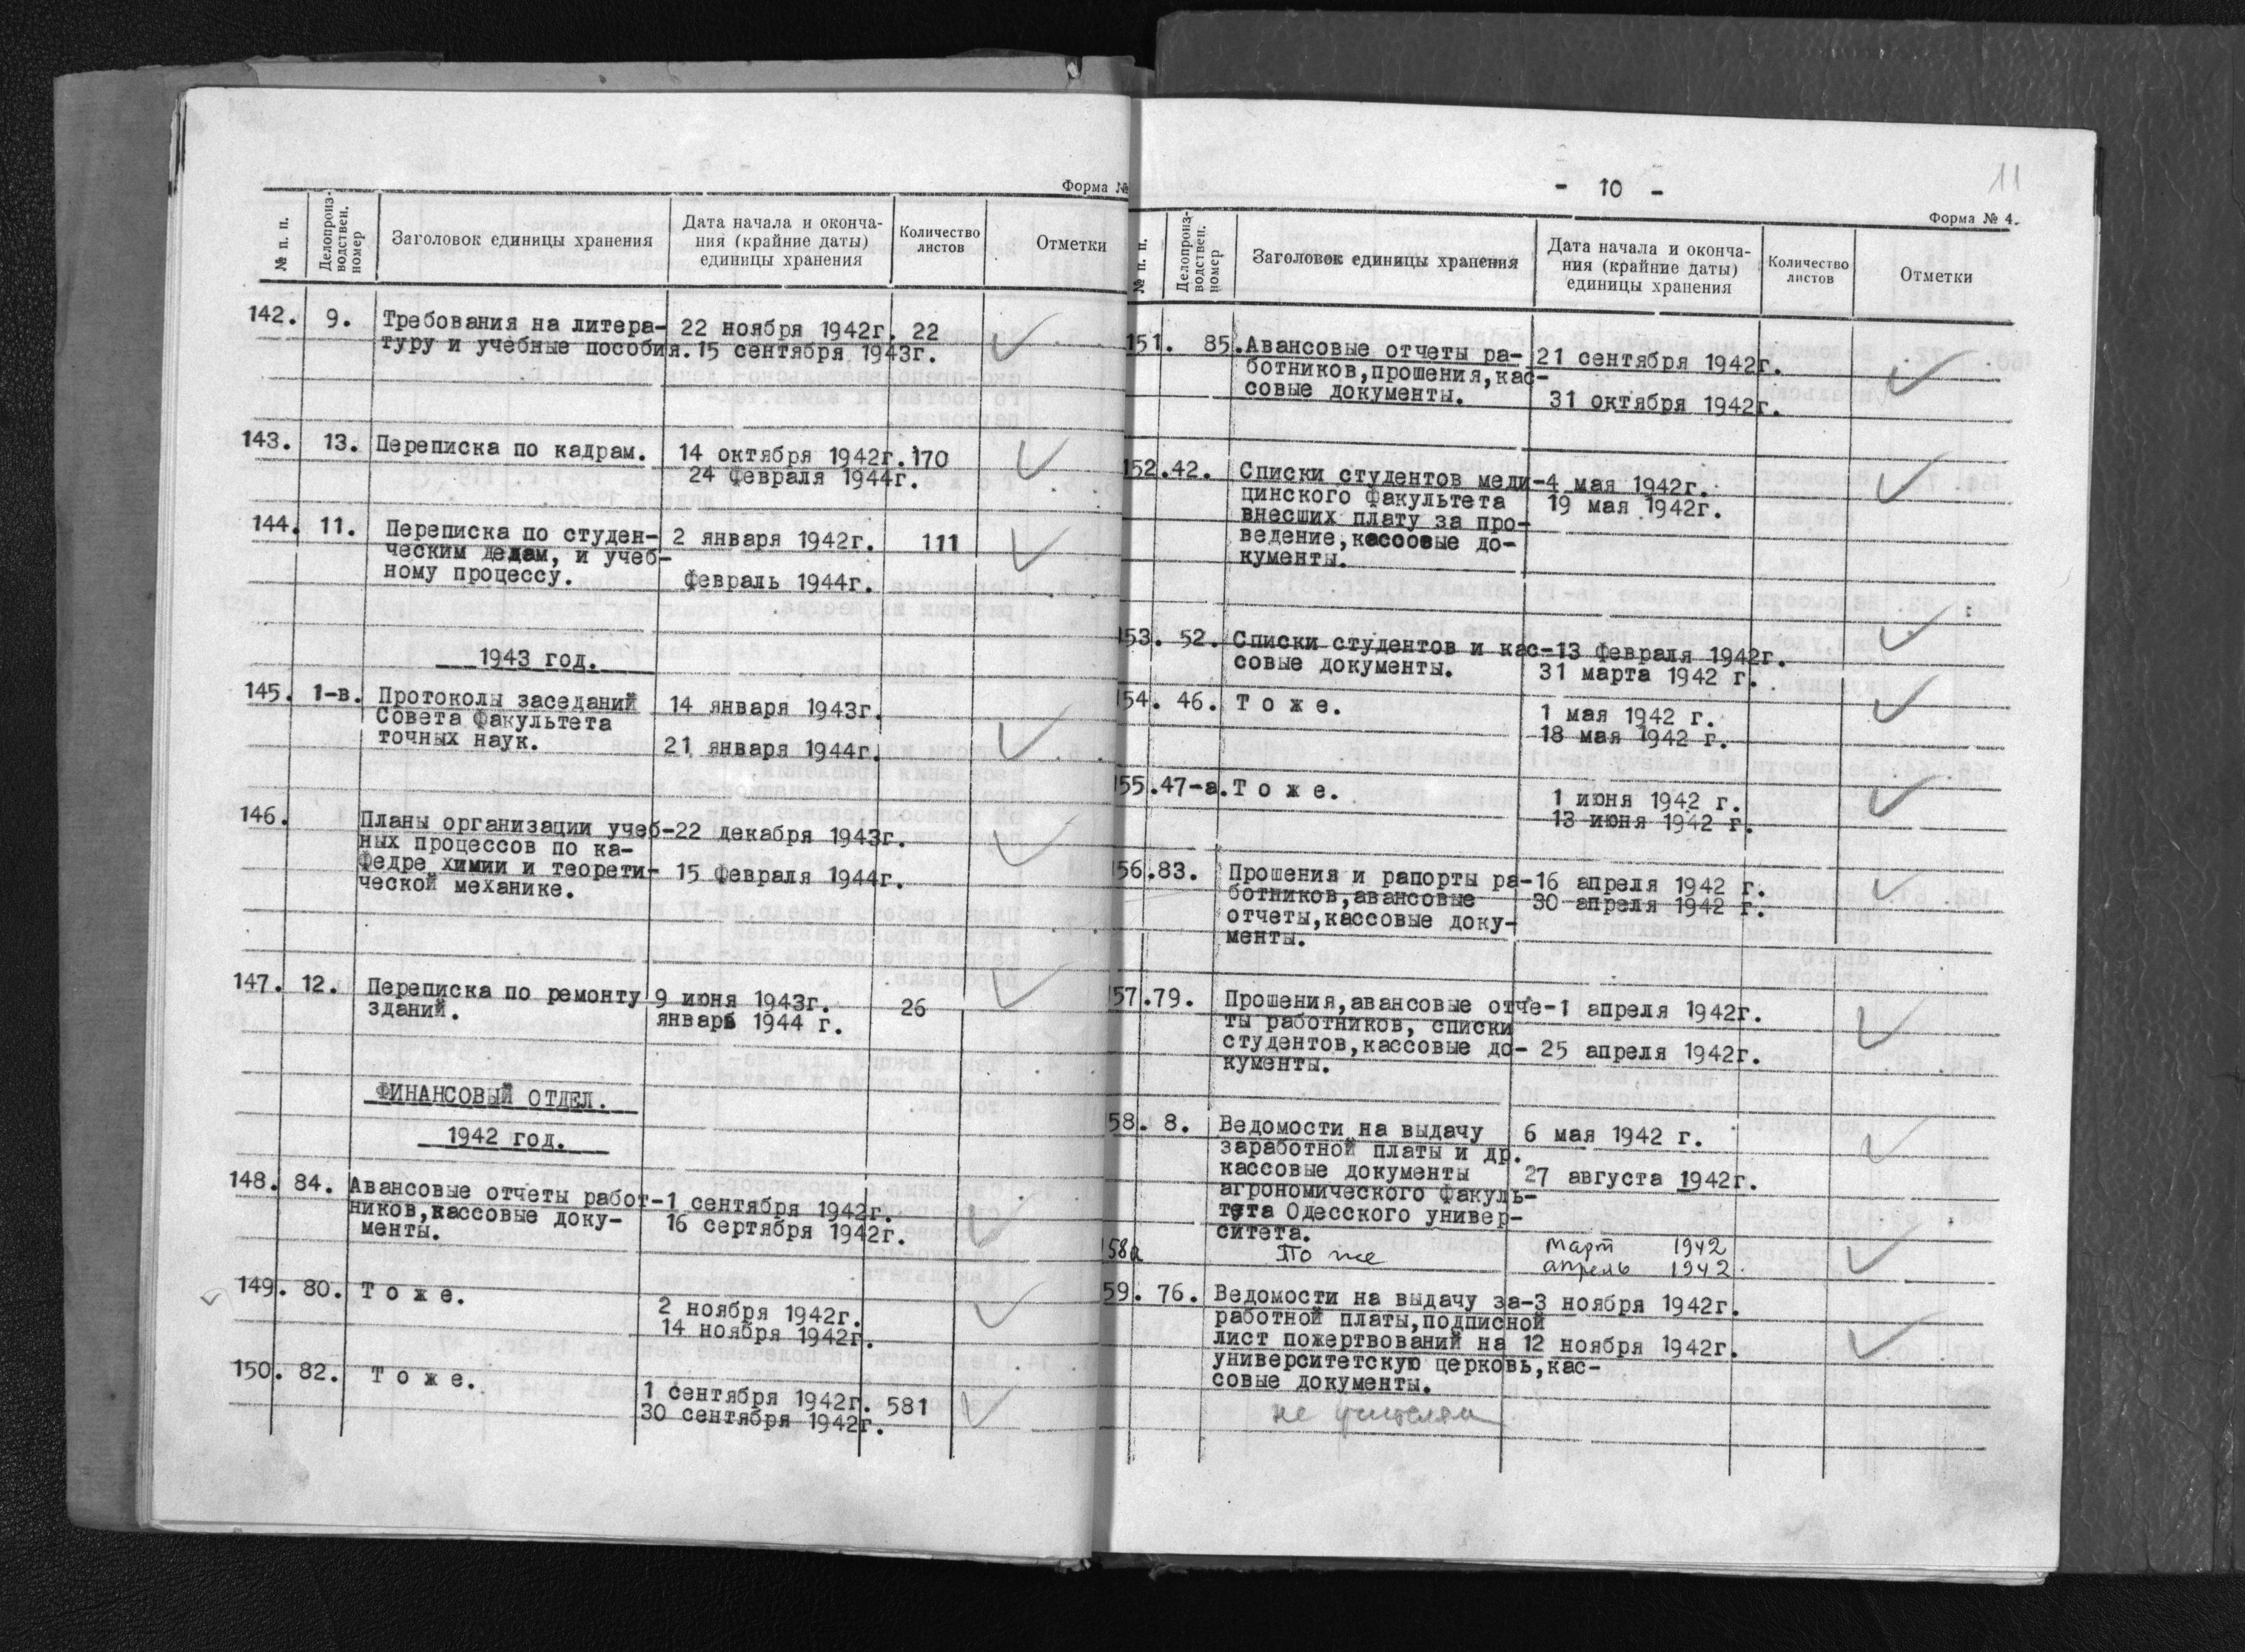 Форма №
№ п. п.
Делопроиз-
водствен.
номер
Заголовок единицы хранения
Дата начала и оконча-
ния (крайние даты)
единицы хранения
Количество
листов
Отметки
142. 9. Требования на литера- 22 ноября 1942г. 22
туру и учебные пособия. 15 сентября 1943г.
143. 13. Переписка по кадрам. 14 октября 1942г. 170
24 февраля 1944г.
144. 11. Переписка по студен- 2 января 1942г. 111
ческим делам, и учеб-
ному процессу. февраль 1944г.
1943 год.
145. 1-в. Протоколы заседаний 14 января 1943г.
Совета факультета
точных наук. 21 января 1944г.
146. Планы организации учеб- 22 декабря 1943г.
ных процессов по ка-
федре химии и теорети- 15 февраля 1944г.
ческой механике.
147. 12. Переписка по ремонту 9 июня 1943г. 26
зданий. январь 1944 г.
ФИНАНСОВЫЙ ОТДЕЛ.
1942 год.
148. 84. Авансовые отчеты работ- 1 сентября 1942г.
ников,кассовые доку- 16 сертября 1942г.
менты.
149. 80. Т о ж е. 2 ноября 1942г.
14 ноября 1942г.
150. 82. Т о ж е. 1 сентября 1942г. 581
30 сентября 1942г.
- 10 -
11
Форма № 4.
№ п. п.
Делопроиз-
водствен.
номер
Заголовок единицы хранения
Дата начала и оконча-
ния (крайние даты)
единицы хранения
Количество
листов
Отметки
151. 85. Авансовые отчеты ра- 21 сентября 1942г.
ботников,прошения,кас-
совые документы. 31 октября 1942г.
152. 42. Списки студентов меди- 4 мая 1942г.
цинского факультета 19 мая 1942г.
внесших плату за про-
ведение,кассовые до-
кументы.
153. 52. Списки студентов и кас- 13 февраля 1942г.
совые документы. 31 марта 1942 г.
154. 46. Т о ж е. 1 мая 1942 г.
18 мая 1942 г.
155. 47-а. Т о ж е. 1 июня 1942 г.
13 июня 1942 г.
156. 83. Прошения и рапорты ра- 16 апреля 1942 г.
ботников,авансовые 30 апреля 1942 г.
отчеты,кассовые доку-
менты.
157. 79. Прошения,авансовые отче- 1 апреля 1942г.
ты работников, списки
студентов,кассовые до- 25 апреля 1942г.
кументы.
58. 8. Ведомости на выдачу 6 мая 1942 г.
заработной платы и др.
кассовые документы 27 августа 1942г.
агрономического факуль-
тета Одесского универ-
ситета.
158а То же март 1942
апрель 1942.
59. 76. Ведомости на выдачу за- 3 ноября 1942г.
работной платы,подписной
лист пожертвований на 12 ноября 1942г.
университетскую церковь,кас-
совые документы.
не